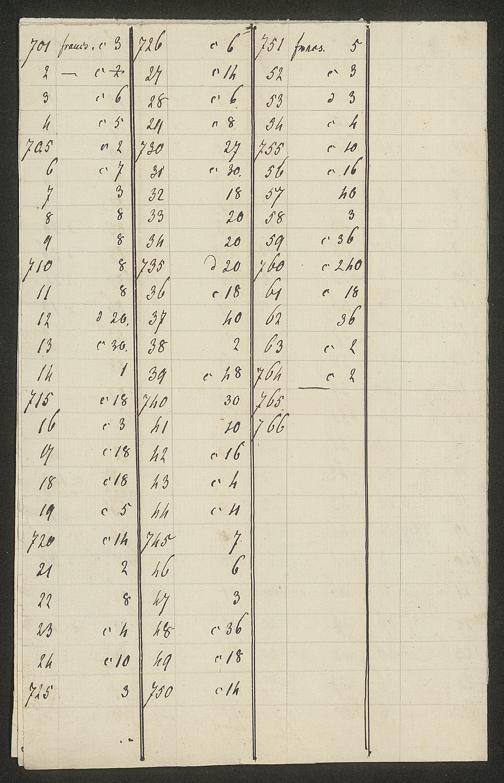 701 francs. c 3
2 — c 2
3 c 6
4 c 5
705 c 2
6 c 7
7 3
8 8
9 8
710 8
11 8
12 d 20.
13 c 30.
14 1
715 c 18
16 c 3
17 c 18
18 c 18
19 c 5
720 c 14
21 2
22 8
23 c 4
24 c 10
725 3
726 c 6
27 c 14
28 c 6
29 c 8
730 27
31 c 30.
32 18
33 20
34 20
735 d 20
36 c 18
37 40
38 2
39 c 48
740 30
41 10
42 c 16
43 c 4
44 c 4
745 7
46 6
47 3
48 c 36
49 c 18
750 c 14
751 francs. 5
52 c 3
53 d 3
54 c 4
755 c 10
56 c 16
57 40
58 3
59 c 36
760 c 240
61 c 18
62 36
63 c 2
764 c 2
765
766